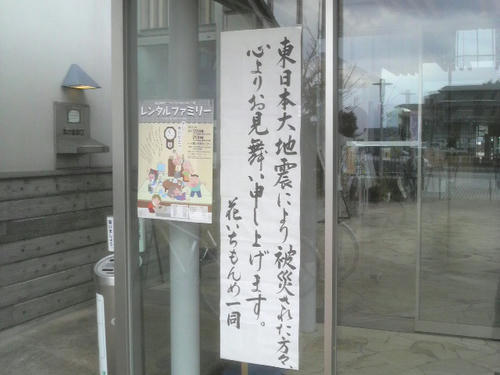 東日本大地震により被災された方々、
心よりお見舞い申し上げます。
花いちもんめ一同
レンタルファミリー